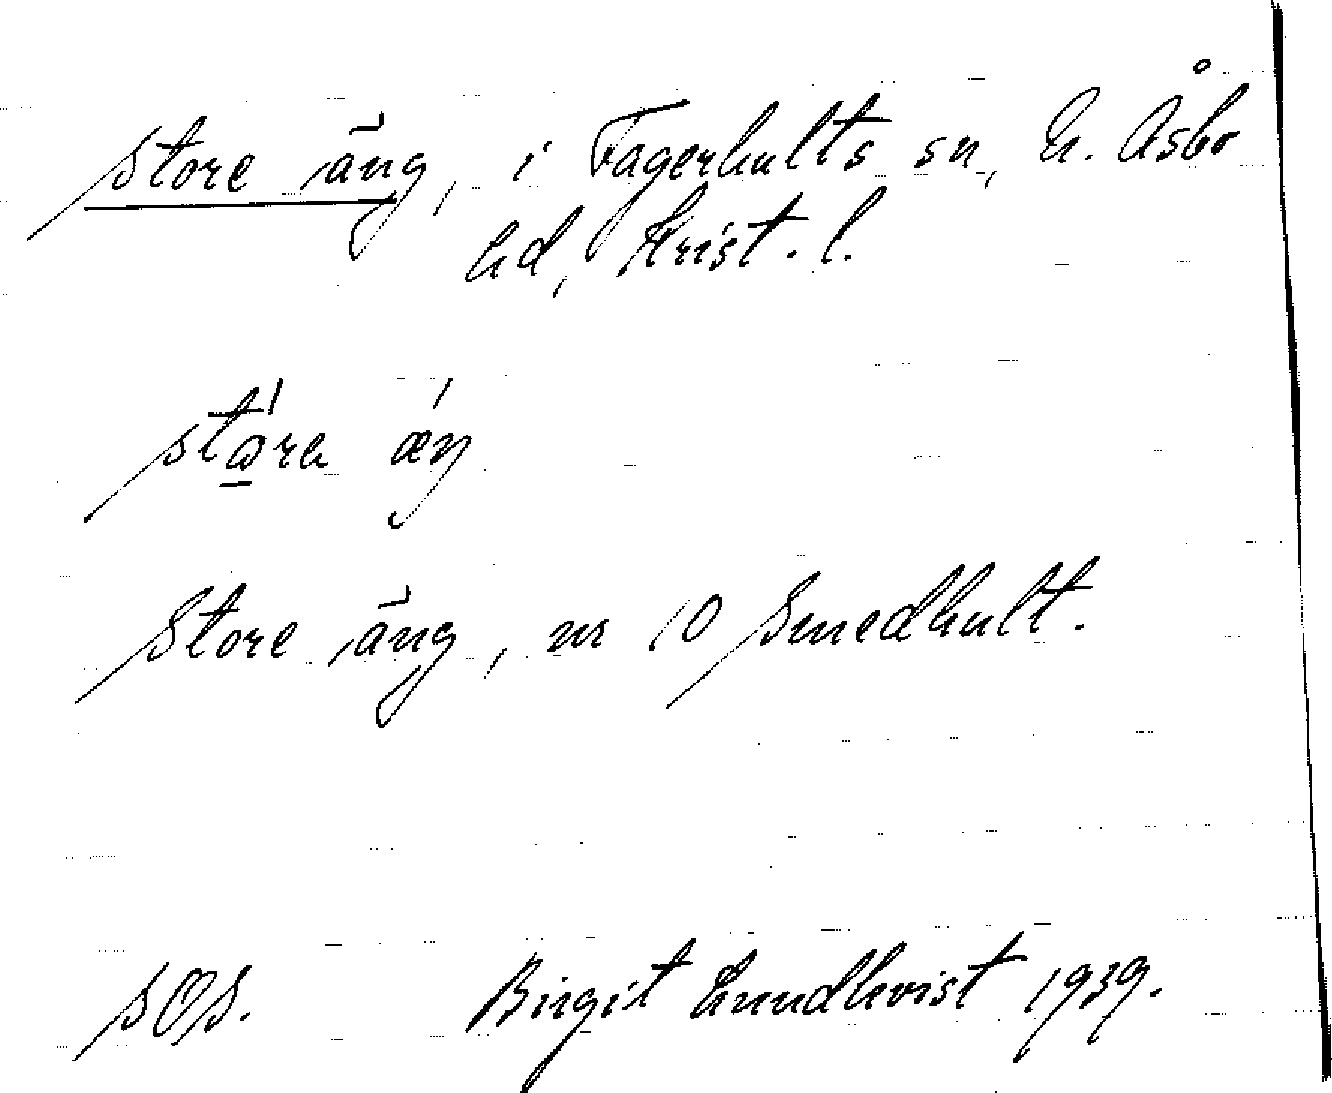 Store äng, i Fagerhults sn, N. Åsbo
hd, Krist. l.
stora äŋ
Store äng, nr 10 Smedhult.
SOS. Birgit Lundkvist 1939.